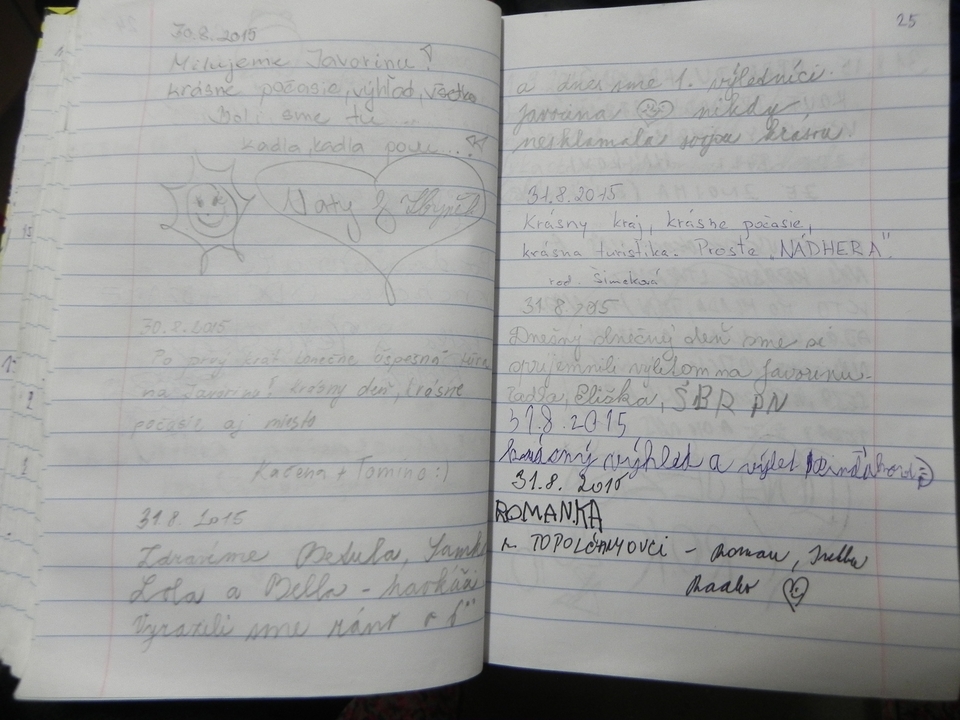 30.8.2015
Milujeme Javorinu!
krásne počasie, výhľad, všetko
Boli sme tu ...
Naty & Zbyněk
30.8.2015
Po prvý krát konečne úspešná túra
na Javorinu! krásny deň, krásne
počasie, aj miesto
+ Tomino :)
31.8.2015
Zdravíme
Lola a Bella - havkáči
Vyrazili sme ráno o
25
a dnes sme 1. výletníci.
Javorina nikdy
nesklamala svoju krásou
31.8.2015
Krásny kraj, krásne počasie,
krásna turistika. Proste „NÁDHERA".
rod. Šimeková
31.8.2015
Dnešný slnečný deň sme si
spríjemnili výletom na Javorinu.
Eliška, ŠBR PN
31.8.2015
krásný výhled a výlet
31.8. 2015
ROMANKA
TOPOĽČANYOVCI - Roman,
Radko